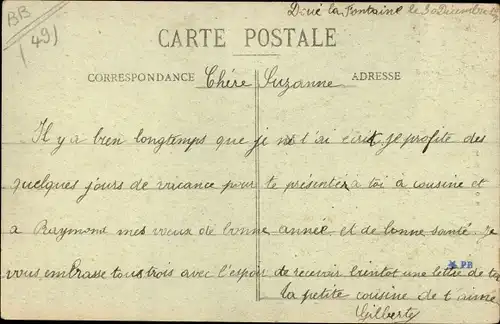 BB
(49)
Doué la Fontaine le 30 Décembre
CARTE POSTALE
CORRESPONDANCE Chére Suzanne ADRESSE
Il y a bien longtemps que je ne t'ai écrit. Je profite des
quelques jours de vacance pour te présenter a toi à cousine et
a Raymond mes voeux de bonne année et de bonne santé. Je
vous embrasse tous trois avec l'espoir de recevoir bientot une lettre de toi
* PB
ta petite cousine de t'aime
Gilberte